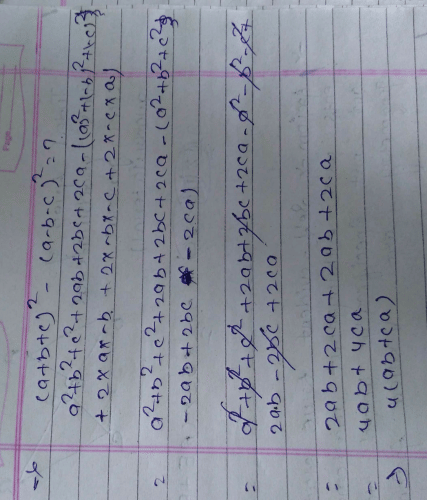 ⇒ (a+b+c)² - (a-b-c)² = ?
a²+b²+c²+2ab+2bc+2ca-((a)²+(-b)²+(-c)²
+ 2×a×-b + 2×-b×-c + 2×-c×a)
= a²+b²+c²+2ab+2bc+2ca-(a²+b²+c²
-2ab+2bc -2ca)
= a²+b²+c²+2ab+2bc+2ca-a²-b²-c²+
2ab-2bc+2ca
= 2ab+2ca+2ab+2ca
= 4ab+4ca
⇒ 4(ab+ca)